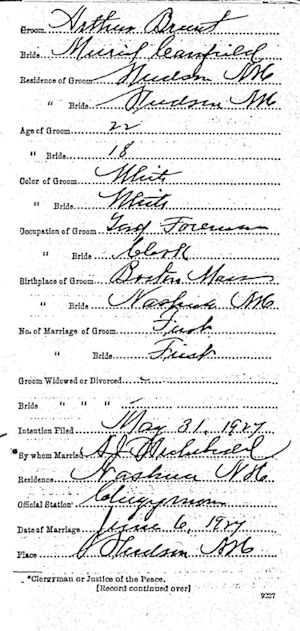 Groom Arthur Brust
Bride Muriel Canfield
Residence of Groom Hudson NH
" Bride Hudson NH
Age of Groom 22
" Bride 18
Color of Groom White
" Bride White
Occupation of Groom Foreman
" Bride Clerk
Birthplace of Groom Boston Mass
" Bride Nashua NH
No. of Marriage of Groom First
" Bride First
Groom Widowed or Divorced -
Bride " " " -
Intention Filed May 31, 1927
*By whom Married
Residence Nashua NH
Official Station Clergyman
Date of Marriage June 6, 1927
Place Hudson NH
*Clergyman or Justice of the Peace.
[Record continued over]
9227